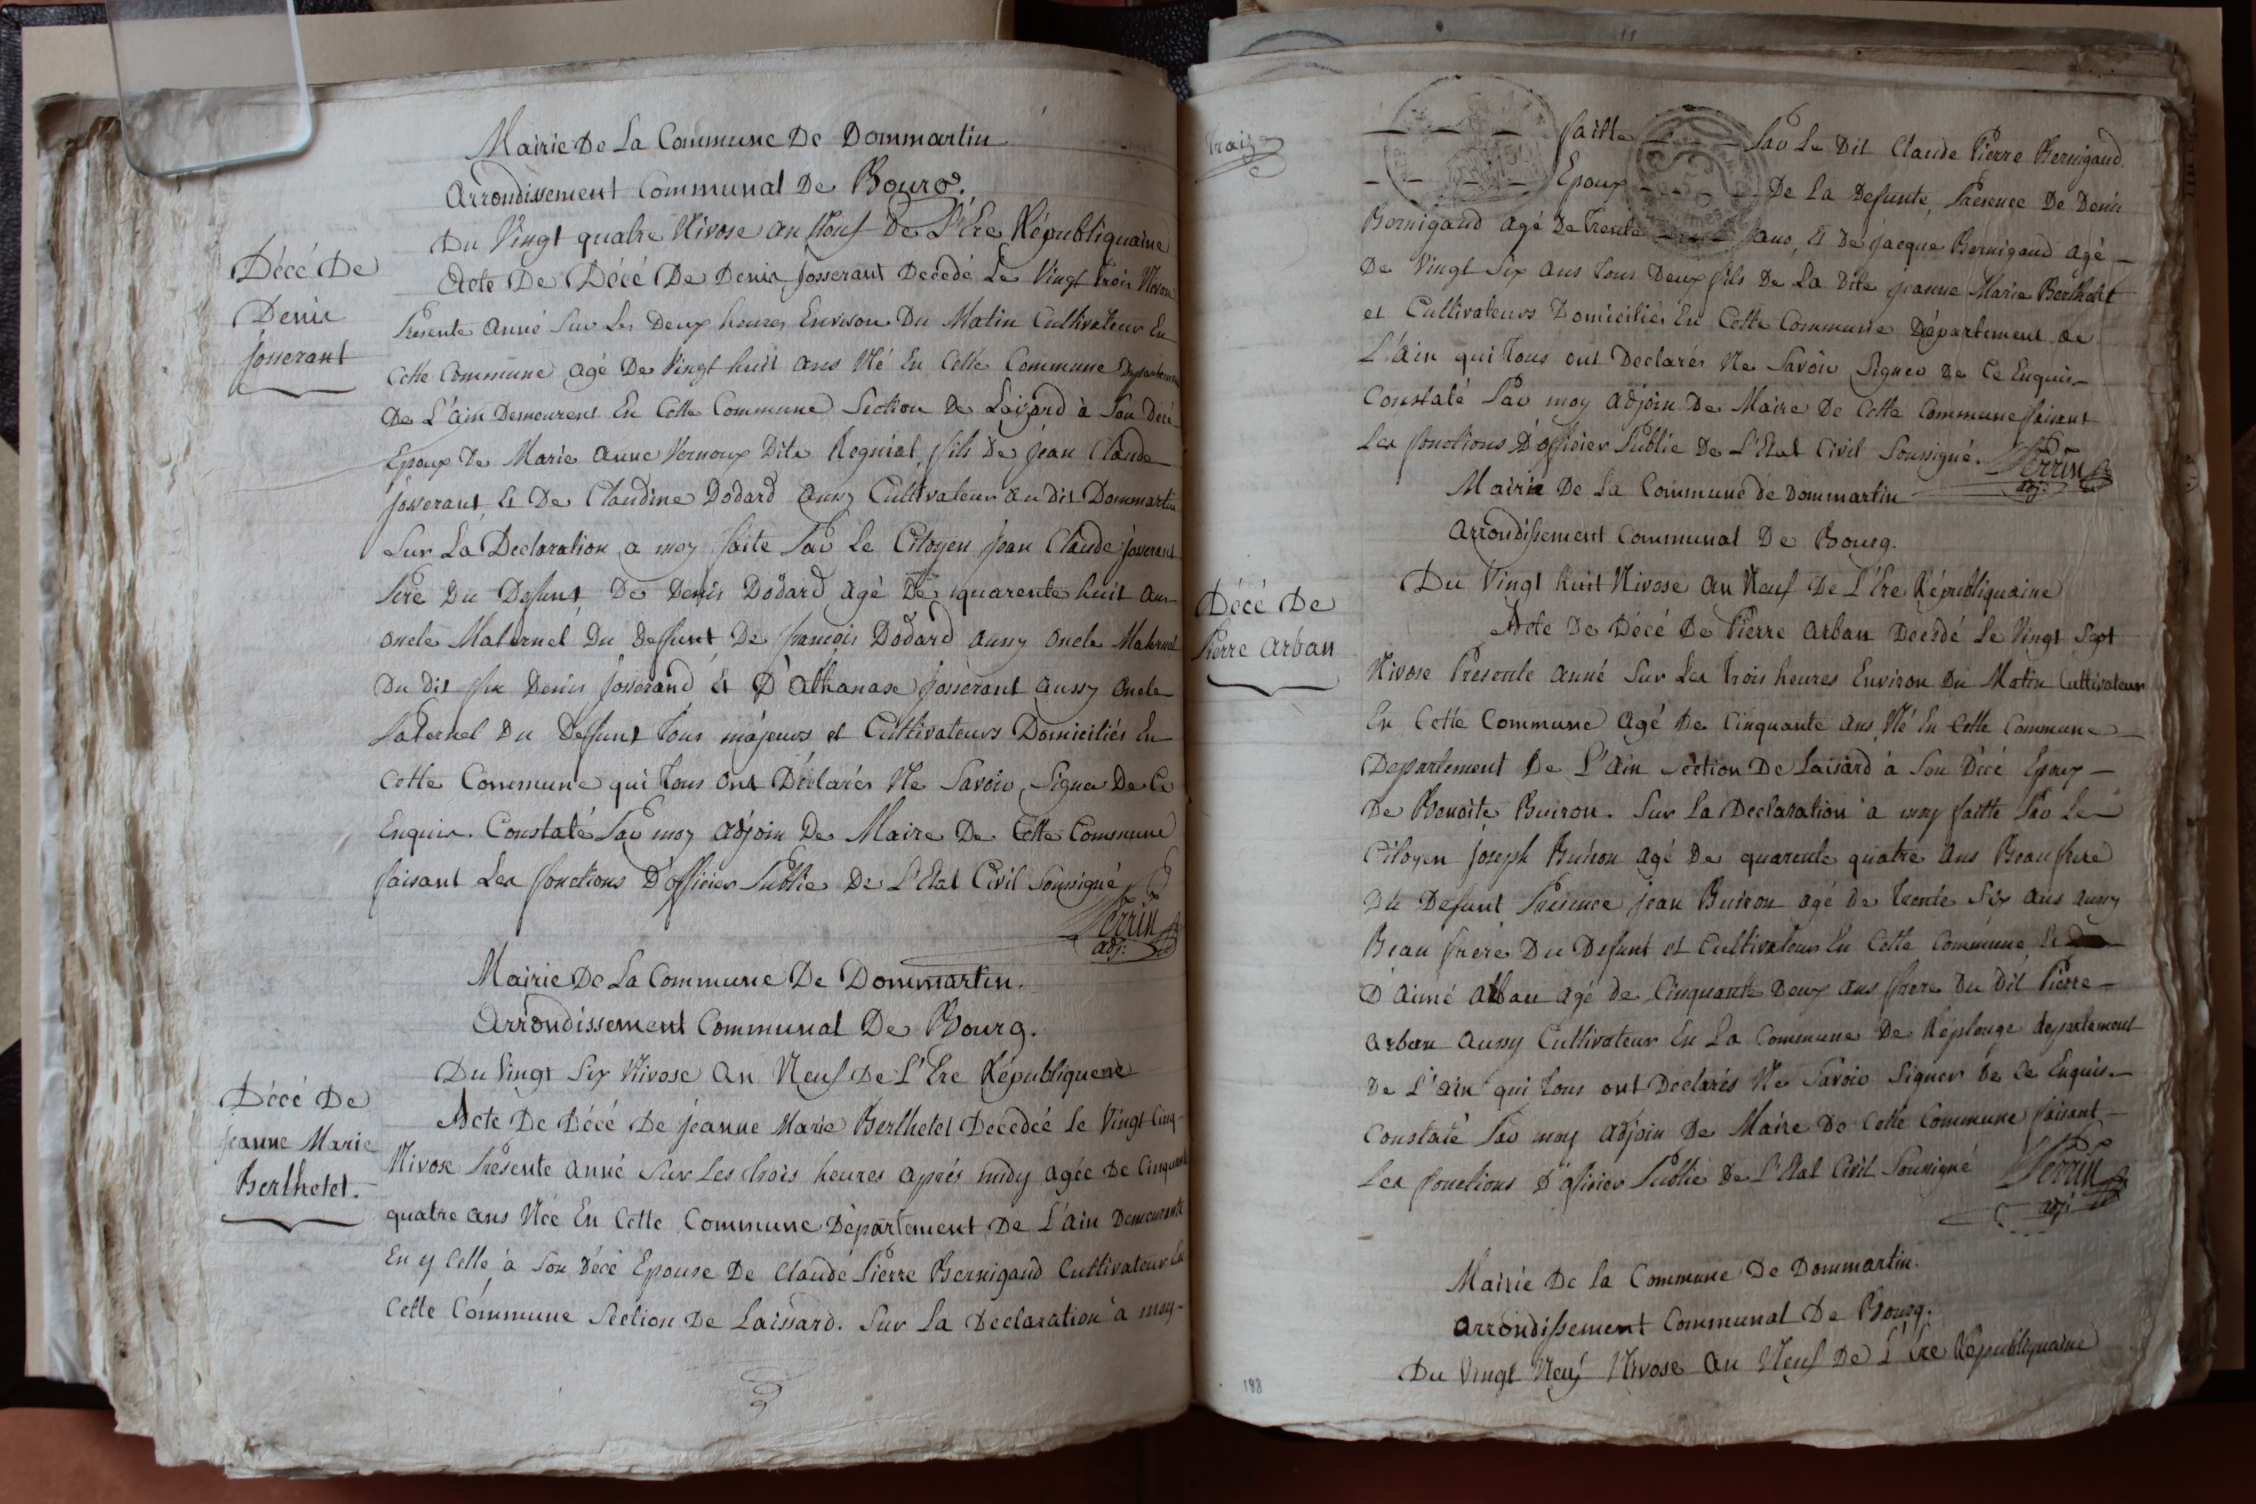 Mairie De La Commune De Dommartin
Arrondissement Communal De Bourg.
Du Vingt quatre Nivose an Neuf De L'Ere Républiquaine
Décé De
Denis
Josserant
Acte De Décé De Denis Josserant Decedé Le Vingt trois Nivose
Presente anné Sur Les Deux heures Environ Du Matin Cultivateur En
Cette Commune agé De Vingt huit ans Né En Cette Commune Departement
De L'ain Demeurent En Cette Commune Section De Laizard à Son Décé
Epoux De Marie anne Vernoux Dite Regniat, fils De Jean Claude
Josserant, et De Claudine Dodard aussy Cultivateur au Dit Dommartin
Sur La Declaration a moy faite Par Le Citoyen Jean Claude Josserant
Pere Du Defunt, De Denis Dodard agé De quarente huit ans
oncle Maternel Du Deffunt, De françois Dodard aussy oncle Maternel
Du dit feu Denis Josserand et D'athanase Josserant aussy oncle
Paternel Du Deffunt Tous majeurs et Cultivateurs Domiciliés En
Cette Commune qui Tous ont Déclarés Ne Savoir Signer De Ce
Enquis. Constaté Par moy adjoin De Maire De Cette Commune
faisant Les fonctions D'officier Public De L'Etat Civil Soussigné
Perrin
adj.
Mairie De La Commune De Dommartin.
Arrondissement Communal De Bourg.
Du Vingt Six Nivose an Neuf De L'Ere Républiquene
Décé De
Jeanne Marie
Berthelet.
Acte De Décé De Jeanne Marie Berthelet Decedée Le Vingt Cinq
Nivose Presente anné Sur Les trois heures aprés midy agée De Cinquante
quatre ans Née En Cette Commune Département De L'ain Demeurante
En y Celle à Son Décé Epouse De Claude Pierre Bernigaud Cultivateur En
Cette Commune Section De Laissard. Sur La Declaration a moy
Traiz
faitte Par Le Dit Claude Pierre Bernigaud
Epoux De La Defunte, Presence De Denis
Bernigaud agé De Trente ans, et De Jacque Bernigaud agé
De Vingt Six ans Tous Deux fils De La Dite Jeanne Marie Berthelet
et Cultivateurs Domiciliés En Cette Commune Département De
L'ain qui Tous ont Declarés Ne Savoir Signer De Ce Enquis
Constaté Par moy adjoin De Maire De Cette Commune faisant
Les fonctions D'officier Public De L'Etat Civil Soussigné. Perrin
adj.
Mairie De La Commune de Dommartin
Arrondissement Communal De Bourg.
Du Vingt huit Nivose an Neuf De L'Ere Républiquaine
Décé De
Pierre Arban
Acte De Décé De Pierre Arban Decedé Le Vingt Sept
Nivose Presente anné Sur Les trois heures Environ Du Matin Cultivateur
En Cette Commune agé De Cinquante ans Né En Cette Commune
Departement De L'ain Section De Laisard à Son Décé Epoux
De Benoite Buiron. Sur La Declaration a moy faitte Par Le
Citoyen Joseph Buiron agé De quarente quatre ans Beau frere
Du Defunt Présence Jean Buiron agé de Trente Six ans aussy
Beau frere Du Defunt et Cultivateurs En Cette Commune Et
D'aimé Arban agé de Cinquante Deux ans frere Du Dit Pierre
Arban aussy Cultivateur En La Commune De Replonge departement
De L'ain qui Tous ont Declarés Ne Savoir Signer De Ce Enquis
Constaté Par moy adjoin De Maire De Cette Commune faisant
Les fonctions D'officier Public De L'Etat Civil Soussigné Perrin
adj.
Mairie De La Commune De Dommartin.
Arrondissement Communal De Bourg.
Du Vingt Neuf Nivose an Neuf De L'Ere Républiquaine
188